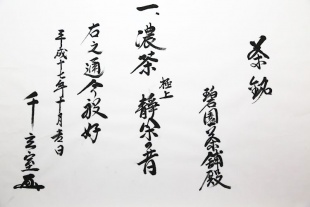 茶銘
碧園茶舗殿
一、濃茶 極上 静宋の昔
右之通令被好
平成十七年十月吉日
千玄室